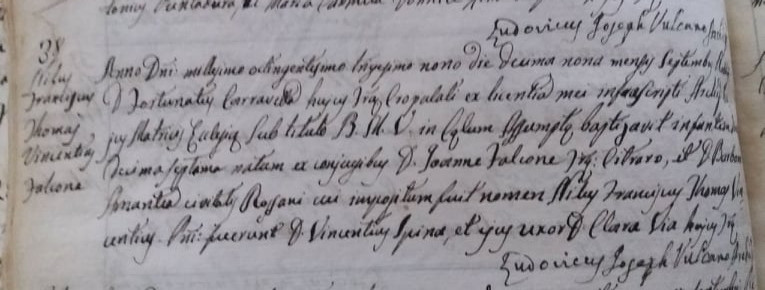 Ludovicus Joseph Vulcano
38
Nilus
Franciscus
Thomas
Vincentius
Falcone
Anno Dni: millesimo octingentesimo trigesimo nono die decima nona mensis Septembris
D. Fortunatus Carravetta hujus Trę Cropalati ex licentia mei infrascripti
jus Matricis Ecclesię sub titulo B. M. V. in Cęlum Assumptę baptizavit infantem
decima septima natum ex conjugibus D. Joanne Falcone Trę: Vitraro, et D.
Amantea civitatis Rossani cui impositum fuit nomen Nilus Franciscus Thomas Vin
centius. Pni: fuerunt D. Vincentius Spina, et ejus uxor D. Clara Via hujus Trę
Ludovicus Joseph Vulcano